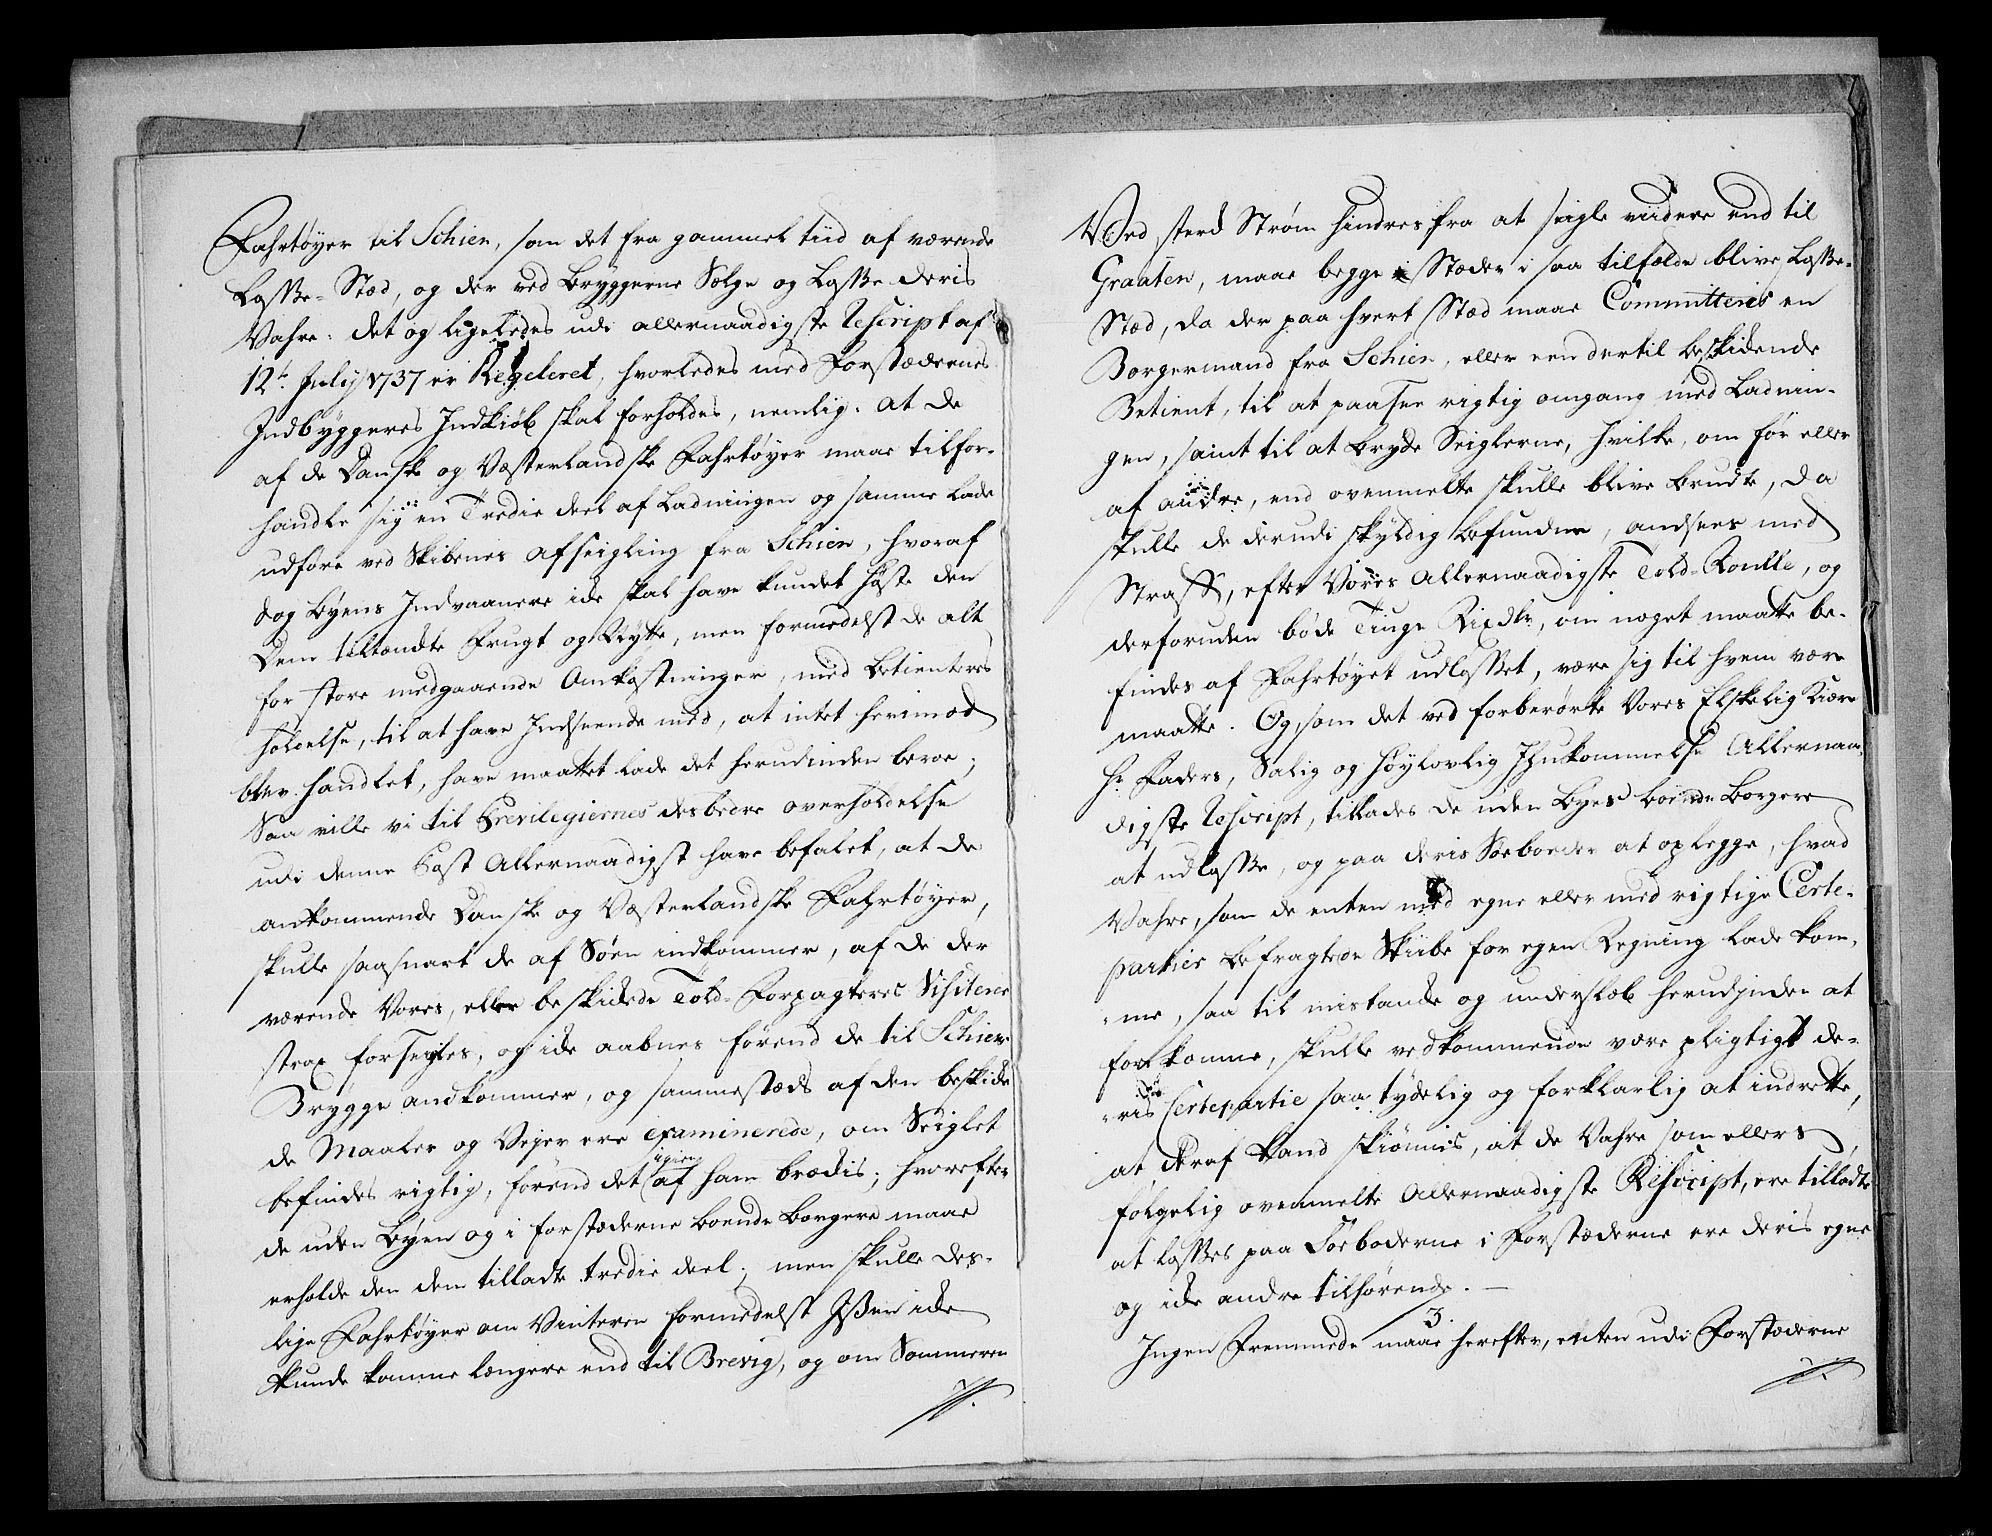 Fahrtøyer til Schien, som det fra gammel tiid af værende
Losse-Stæd, og der ved Bryggerne Sælge og Losse deris
Vahre: det og ligeledes udi allernaadigste Rescript af
12te July 1737 er Reguleret, hvorledes med Forstædernes
Indbyggeres Indkiøb skal forholdes, nemlig: at de
af de Danske og Vesterlandske Fahrtøyer maae tilfor-
handle sig en Tredie deel af Ladningen og samme lade
udføre ved Skibenes afseigling fra Schien, hvoraf
dog Byens Indvaanere icke skal have kundet høste den
Dem tiltænckte Frugt og Nytte, men formedelst de alt
for store medgaaende Omkostninger, med Betienteres
holdelse, til at have Indseende med, at intet herimod
blev handlet, have maattet lade det herudinden beroe;
Saa ville vi til Previlegiernes desbedre overholdelse
udi denne Post Allernaadigst have befalet, at de
ankommende Danske og Vesterlandske Fahrtøyer,
skulle saasnart de af Søen indkommer, af de der
værende Vores, eller beskickede Told-Forpagteres Visiterer
strax forsegles, og icke aabnes førend de til Schiens
Brygge andkommer, og sammestæds af den beskicke
de Maaler og Vejer ere examinerede, om Seiglet
befindes rigtig, førend det igien af ham brædis; hvorefter
de uden Byen og i forstæderne boende Borgere maae
erholde den dem tilladte tredie deel; men skulle des-
lige Fahrtøyer om Vinteren formedelst Iissen icke
kunde komme længere end til Brevig, og om Sommeren
Ved sterck Strøm hindres fra at seigle viidere end til
Graaten, maae begge Stæder i saa tilfælde blive Losse-
Stæd, da der paa hvert Stæd maae Committeris en
Borgermand fra Schien, eller een dertil beskickende
Betient, til at paasee rigtig omgang med Ladnin-
gen, samt til at bryde Seiglerne, hvilke, om før eller
af andre, end ovenmelte skulle blive brudte, da
skulle de derudi skyldig befundne, andsees med
Straff, efter Vores Allernaadigste Told-Roulle, og
derforuden bøde Tiuge Rixdlr, om noget maatte be-
findes af Fahrtøyet udlosset, være sig til hvem være
maatte. Og, som det ved forberørte Vores Elskelig Kiære
Hr. Faders, Salig og Høylovlig Ihukommelse Allernaa-
digste Rescript, tillades de uden Byes boende Borgere
at udlosse, og paa deris Søeboeder at oplegge, hvad
Vahre, som de enten med egne eller med rigtige Certe-
partier befragtede Skiibe for egen Regning lade kom-
me, saa til mistancke og underslæb herudjnden at
forekomme, skulle vedkommende være pligtigt de-
ris Certepartie saa tydelig og forklarlig at indrette,
at deraf kand skiønnis, at de Vahre som ellers
følgelig ovenmelte Allernaadigste Rescript, ere tilladte
at losses paa Søeboderne i Forstæderne ere deris egne
og icke andre tilhørende.
3.
Ingen Fremmede maae herefter, enten udi Forstæderne